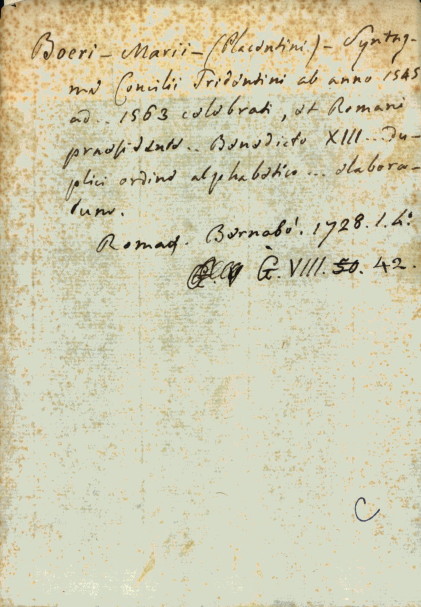 Boeri - Marii - (Placentini) - Syntag-
ma Concilii Tridentini ab anno 1545
ad .. 1563 celebrati, et Romani
praesidente .. Benedicto XIII .. Du-
plici ordine alphabetico ... elabora-
tum.
Romae. Bernabò. 1728. 1. 4.º
G. VIII. 50. 42.
C